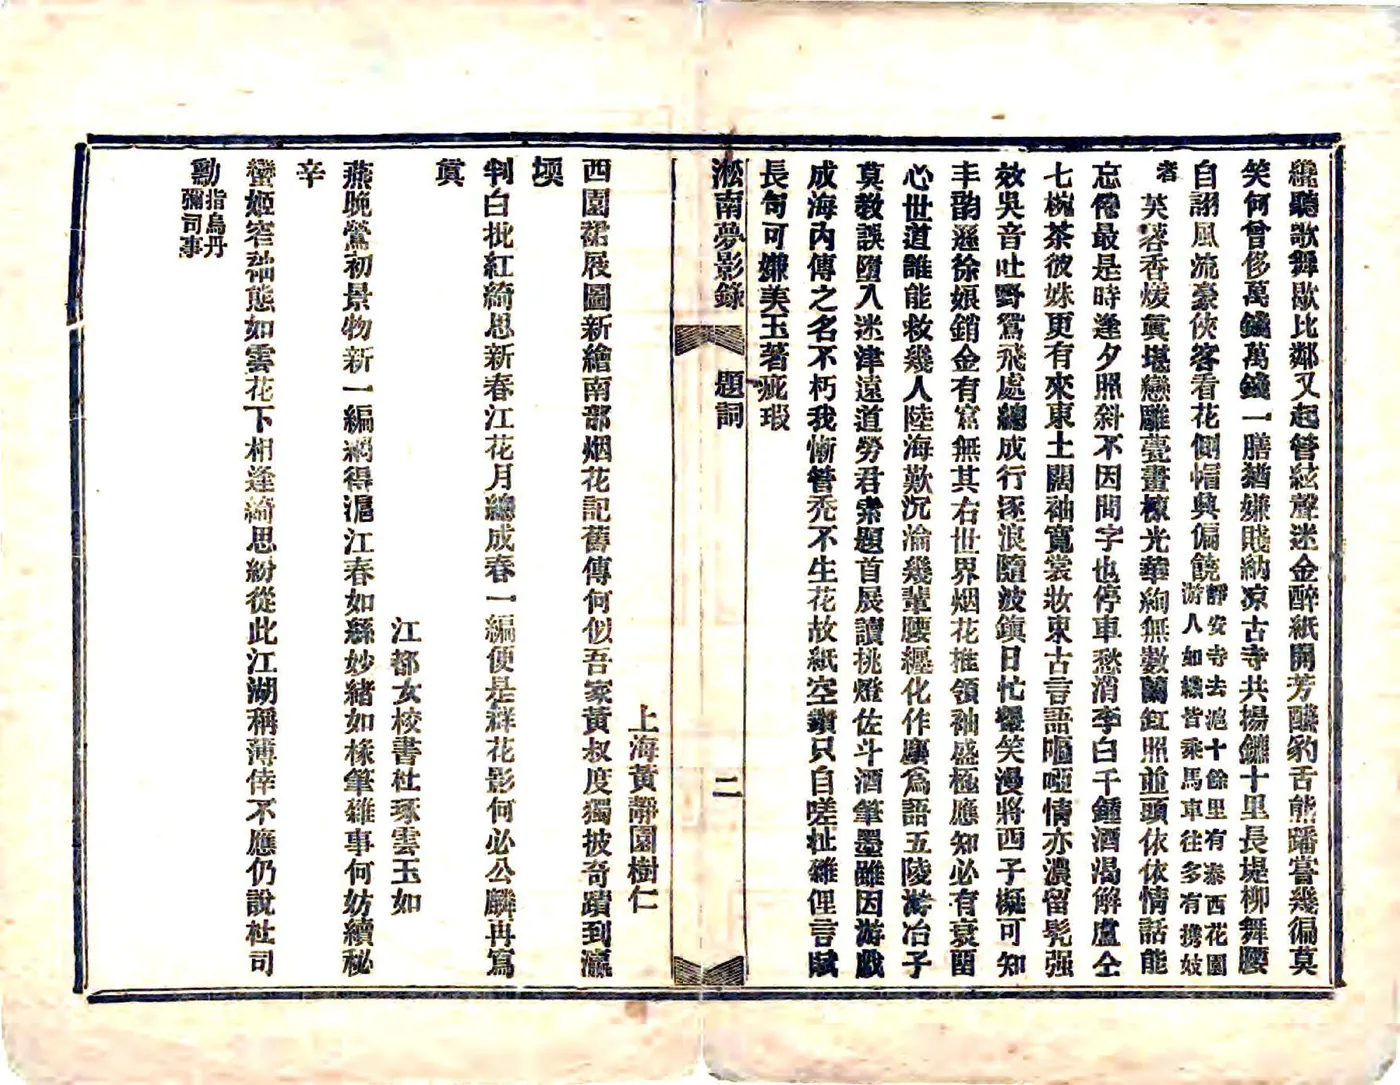 纔聽歌舞歇比鄰又起管絃聲迷金醉紙開芳醼豹舌熊蹯嘗幾徧莫
笑何曾侈萬錢萬錢一膳猶嫌賤納凉古寺共揚鑣十里長堤柳舞腰
自詡風流豪俠客看花側帽與偏饒靜安寺去滬十餘里有泰西花園
游人如織皆乘馬車往多有携妓
者芙蓉香煖眞堪戀雕甍畫棟光華絢無數蘭釭照並頭依依情話能
忘倦最是時逢夕照斜不因問字也停車愁消李白千鍾酒渴解盧仝
七椀茶彼姝更有來東土闊袖寬裳妝束古言語啁啞情亦濃留髡强
效吳音吐野鴛飛處總成行逐浪隨波鎭日忙顰笑漫將西子擬可知
丰韵遜徐娘銷金有窟無其右世界烟花推領袖盛極應知必有衰囬
心世道誰能救幾人陸海歎沉淪幾輩腰纏化作塵爲語五陵游冶子
莫敎誤墮入迷津遠道勞君索題首展讀挑燈佐斗酒筆墨雖因游戲
成海內傳之名不朽我慚管禿不生花故紙空鑽只自嗟扯雜俚言賦
長句可嫌美玉著疵瑕
淞南夢影錄 題詞 二
上海黃靜園樹仁
西園裙屐圖新繪南部烟花記舊傳何似吾家黃叔度獨披奇蹟到瀛
壖
判白批紅綺思新春江花月總成春一編便是群花影何必公麟再寫
眞
江都女校書杜琢雲玉如
燕晚鶯初景物新一編網得滬江春如絲妙緖如椽筆雜事何妨續秘
辛
蠻姬窄袖態如雲花下相逢綺思紛從此江湖稱薄倖不應仍說杜司
勳指烏丹
彌司事